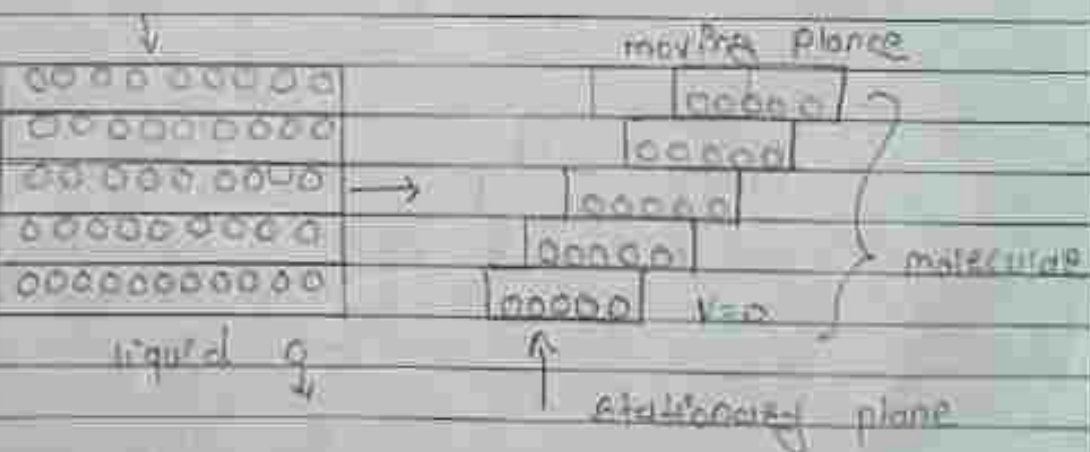 moving plance
V=0
moleculde
liquid
stationary plane